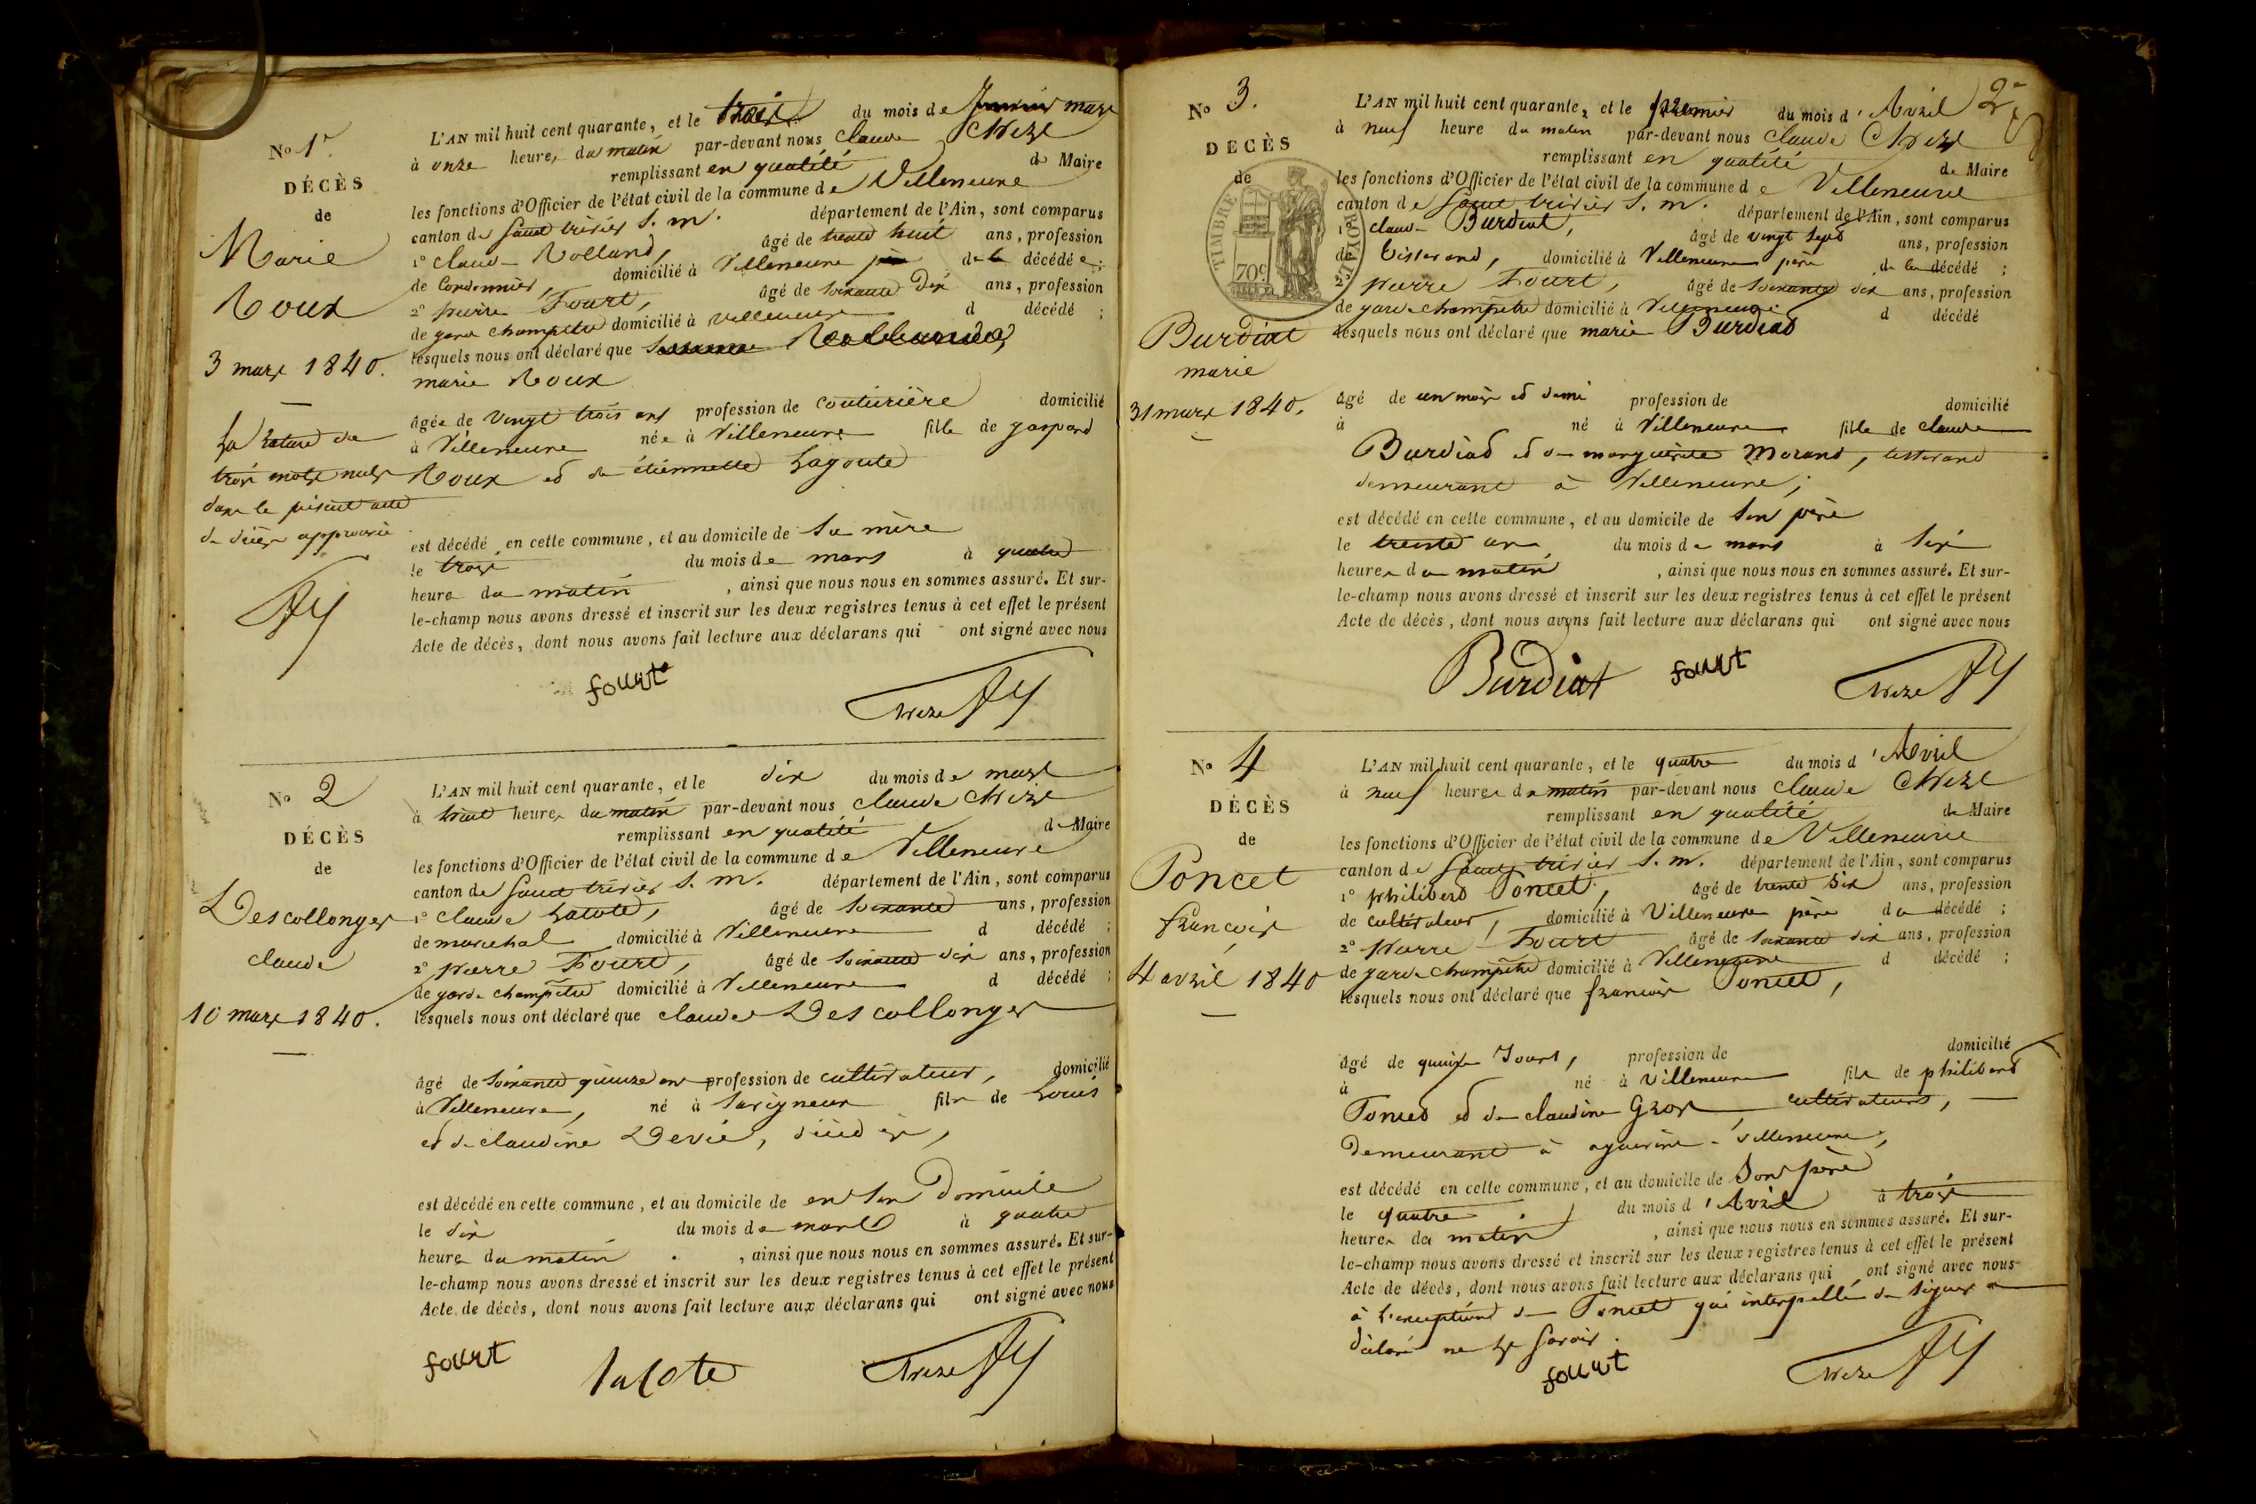 No 1er
DÉCÈS
de
Marie
Roux
3 mars 1840.
La rature de
trois mots nuls
dans le présent acte
approuvée
L'AN mil huit cent quarante, et le trois du mois de Janvier mars
à onze heures du matin par-devant nous Claude Chize
remplissant en qualité de Maire
les fonctions d'Officier de l'état civil de la commune de Villeneuve
canton de Saint trivier S. m. département de l'Ain, sont comparus
1° Claude Rolland, âgé de trente huit ans, profession
de Cordonnier, domicilié à Villeneuve de la décédée ;
2° pierre Fourt, âgé de soixante Dix ans, profession
de garde champêtre domicilié à Villeneuve d décédé ;
lesquels nous ont déclaré que
marie Roux
âgée de vingt trois ans profession de couturière domicilié
à Villeneuve née à Villeneuve fille de gaspard
Roux et de étiennette Lagoute
est décédé en cette commune, et au domicile de Sa mère
le trois du mois de mars à quatre
heure du matin, ainsi que nous nous en sommes assuré. Et sur-
le-champ nous avons dressé et inscrit sur les deux registres tenus à cet effet le présent
Acte de décès, dont nous avons fait lecture aux déclarans qui ont signé avec nous
fourt
Chize
No 2
DÉCÈS
de
Descollonges
claude
10 mars 1840.
L'AN mil huit cent quarante, et le dix du mois de mars
à huit heures du matin par-devant nous Claude Chize
remplissant en qualité de Maire
les fonctions d'Officier de l'état civil de la commune de Villeneuve
canton de Saint trivier S. m. département de l'Ain, sont comparus
1° Claude Lacote, âgé de soixante ans, profession
de marechal domicilié à Villeneuve d décédé ;
2° pierre Fourt, âgé de soixante dix ans, profession
de garde champêtre domicilié à Villeneuve d décédé ;
lesquels nous ont déclaré que claude Descollonges
âgé de soixante quinze ans profession de cultivateur, domicilié
à Villeneuve, né à Savigneux fils de Louis
et de claudine Devie,
est décédé en cette commune, et au domicile de en son Domicile
le dix du mois de mars à quatre
heures du matin, ainsi que nous nous en sommes assuré. Et sur-
le-champ nous avons dressé et inscrit sur les deux registres tenus à cet effet le présent
Acte de décès, dont nous avons fait lecture aux déclarans qui ont signé avec nous
fourt lacote Chize
2e
No 3.
DÉCÈS
de
TIMBRE ROYAL
70c
Burdiat
marie
31 mars 1840.
L'AN mil huit cent quarante, et le premier du mois d'Avril
à neuf heure du matin par-devant nous Claude Chize
remplissant en qualité de Maire
les fonctions d'Officier de l'état civil de la commune de Villeneuve
canton de Saint trivier S. m. département de l'Ain, sont comparus
1° claude Burdiat, âgé de vingt sept ans, profession
de tisserand, domicilié à Villeneuve père de la décédé ;
2° pierre Fourt, âgé de soixante dix ans, profession
de garde champêtre domicilié à Villeneuve d décédé
lesquels nous ont déclaré que marie Burdiat
âgé de un mois et demi profession de domicilié
à né à Villeneuve fille de claude
Burdiat et de marguerite Morand, tisserand
demeurant à Villeneuve ;
est décédé en cette commune, et au domicile de Son père
le trente un du mois de mars à six
heures du matin, ainsi que nous nous en sommes assuré. Et sur-
le-champ nous avons dressé et inscrit sur les deux registres tenus à cet effet le présent
Acte de décès, dont nous avons fait lecture aux déclarans qui ont signé avec nous
Burdiat fourt Chize
No 4
DÉCÈS
de
Poncet
francois
4 avril 1840
L'AN mil huit cent quarante, et le quatre du mois d'Avril
à neuf heures du matin par-devant nous Claude Chize
remplissant en qualité de Maire
les fonctions d'Officier de l'état civil de la commune de Villeneuve
canton de Saint trivier S. m. département de l'Ain, sont comparus
1° philibert Poncet, âgé de trente six ans, profession
de cultivateur, domicilié à Villeneuve père du décédé ;
2° pierre Fourt âgé de soixante dix ans, profession
de garde champêtre domicilié à Villeneuve d décédé ;
lesquels nous ont déclaré que francois Poncet,
âgé de quinze Jours, profession de domicilié
à né à Villeneuve fils de philibert
Poncet et de claudine Gros, cultivateurs,
demeurant à Villeneuve,
est décédé en cette commune, et au domicile de Son père
le quatre du mois d'Avril à trois
heures du matin, ainsi que nous nous en sommes assuré. Et sur-
le-champ nous avons dressé et inscrit sur les deux registres tenus à cet effet le présent
Acte de décès, dont nous avons fait lecture aux déclarans qui ont signé avec nous
à l'exception de Poncet qui interpellé de signer a
déclaré ne le savoir.
fourt Chize